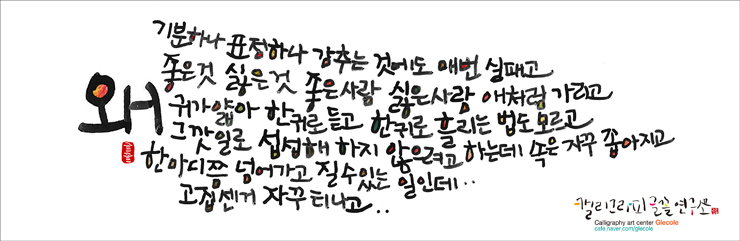 왜
기분하나 표정하나 감추는 것에도 매번 실패고
좋은것 싫은것 좋은사람 싫은사람 애처럼 가리고
귀가 얇아 한귀로 듣고 한귀로 흘리는 법도 모르고
그깟일로 섭섭해 하지 않으려고 하는데 속은 자꾸 좁아지고
한마디쯤 넘어가고 질수있는 일인데..
고집센거 자꾸 티나고..
캘리그라피 글꼴 연구소
Calligraphy art center Glecole
cafe.naver.com/glecole